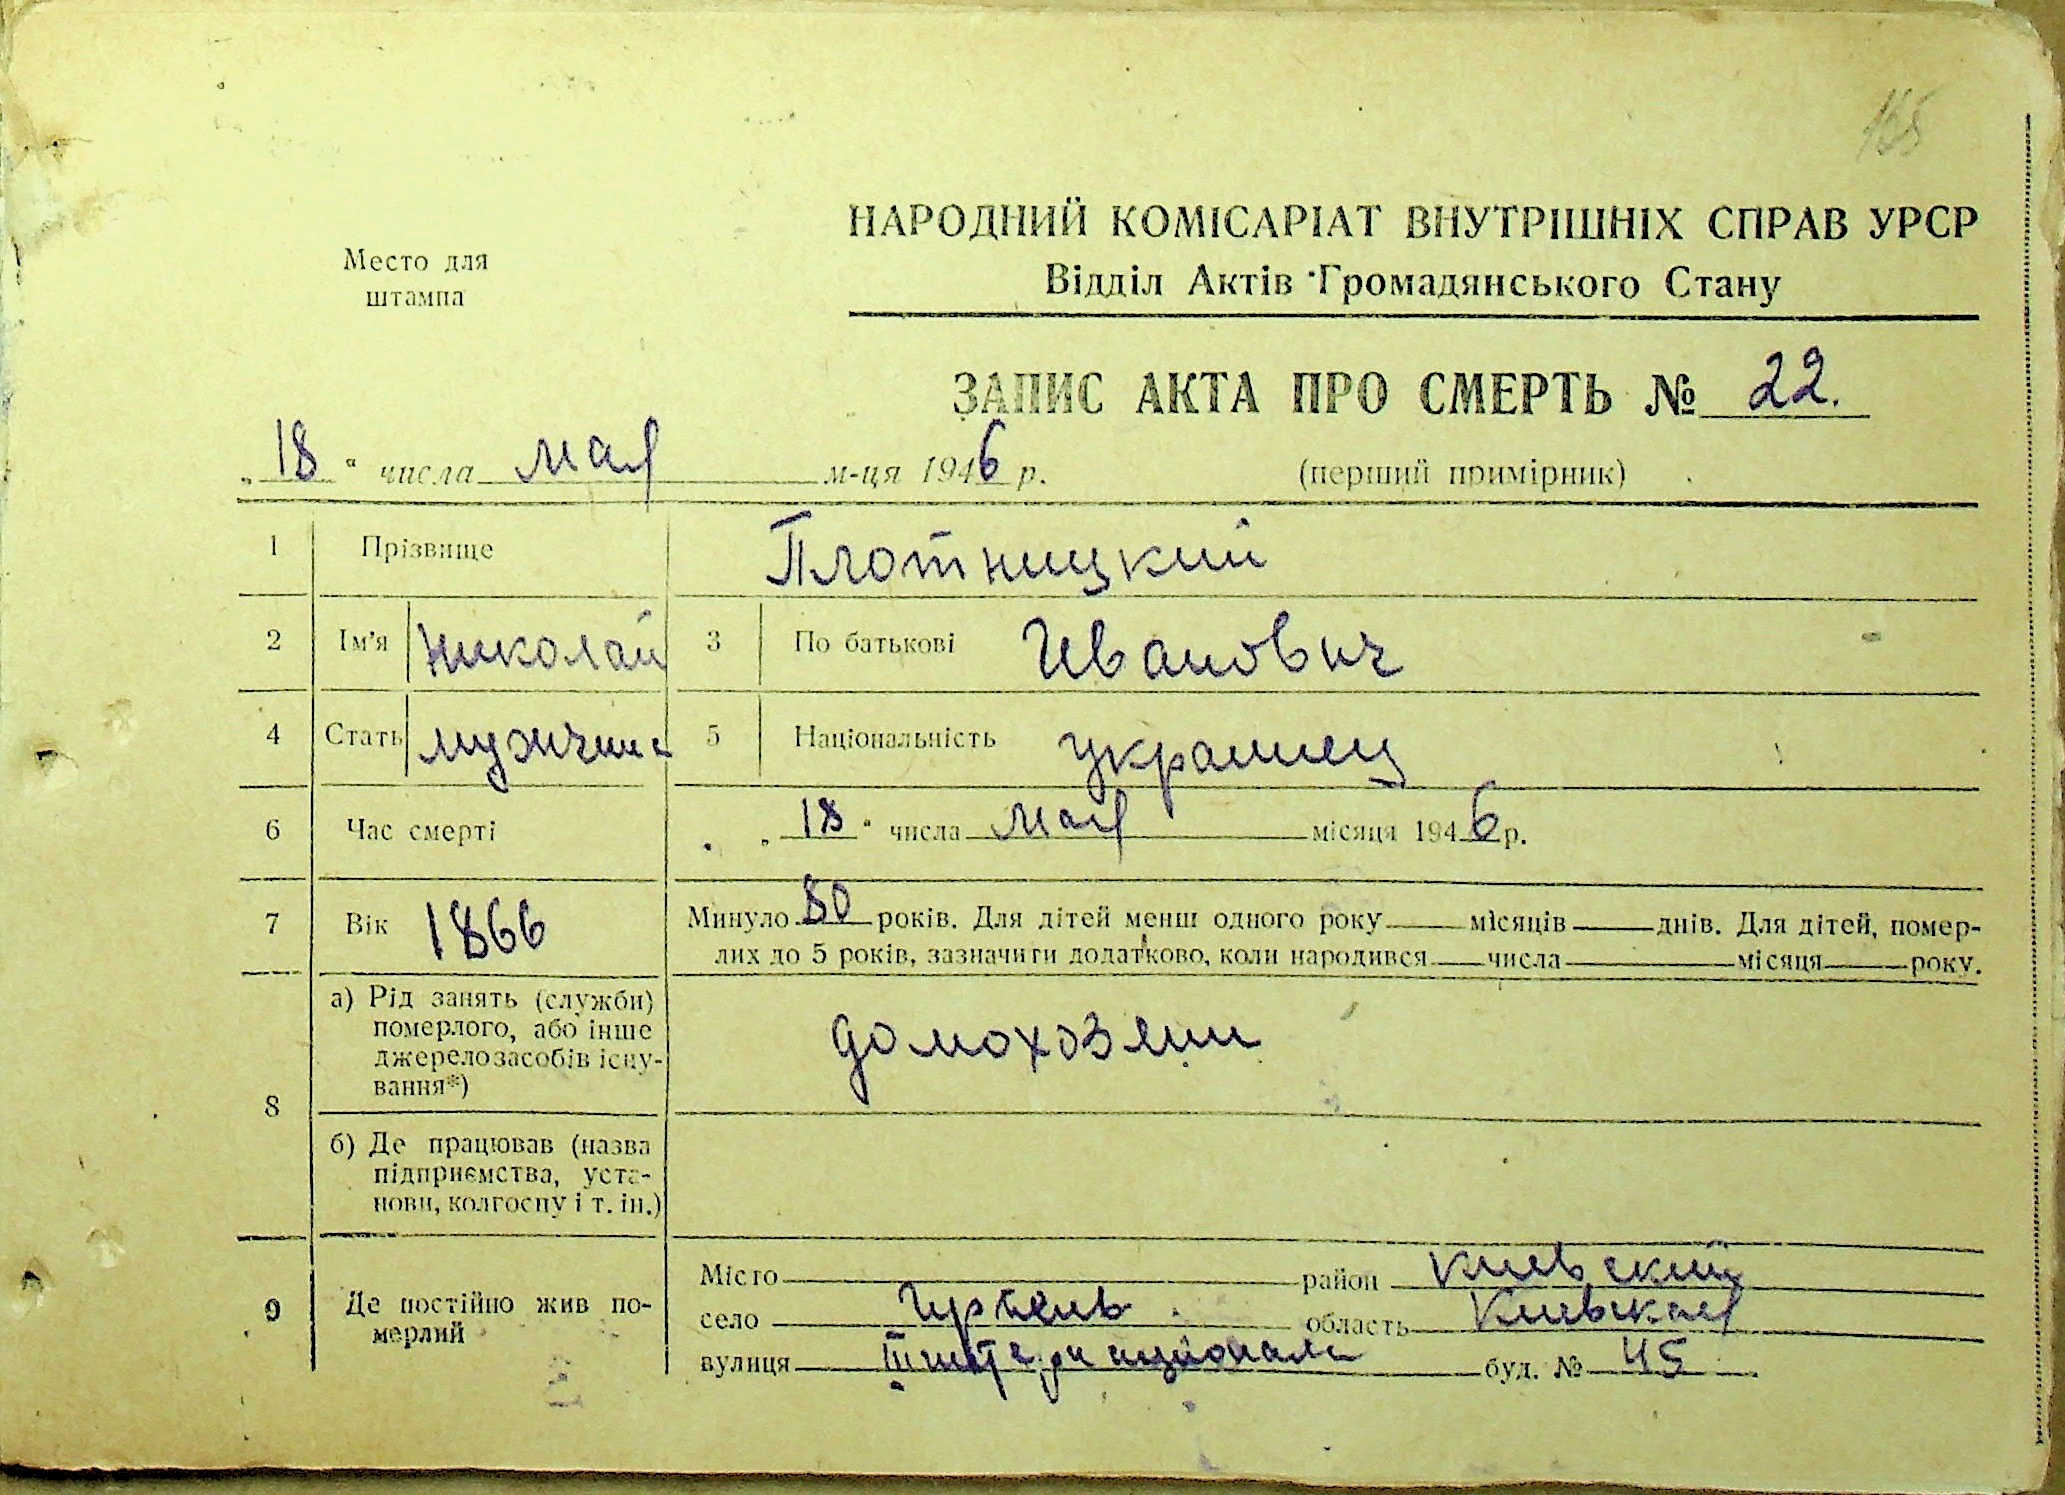 165
НАРОДНИЙ КОМІСАРІАТ ВНУТРІШНІХ СПРАВ УРСР
Место для
штампа
Відділ Актів Громадянського Стану
ЗАПИС АКТА ПРО СМЕРТЬ № 22.
„18“ числа мая м-ця 1946 р. (перший примірник)
1 Прізвище Плотницкий
2 Ім'я Николай 3 По батькові Иванович
4 Стать мужчина 5 Національність украинец
6 Час смерті „18“ числа мая місяця 1946 р.
7 Вік 1866 Минуло 80 років. Для дітей менш одного року місяців днів. Для дітей, помер-
лих до 5 років, зазначити додатково, коли народився числа місяця року.
8 а) Рід занять (служби)
померлого, або інше
джерело засобів існу-
вання*)
домохозяин
б) Де працював (назва
підприємства, уста-
нови, колгоспу і т. ін.)
9 Де постійно жив по-
мерлий
Місто район Киевский
село Ирпень область Киевская
вулиця Интернационала буд. № 45